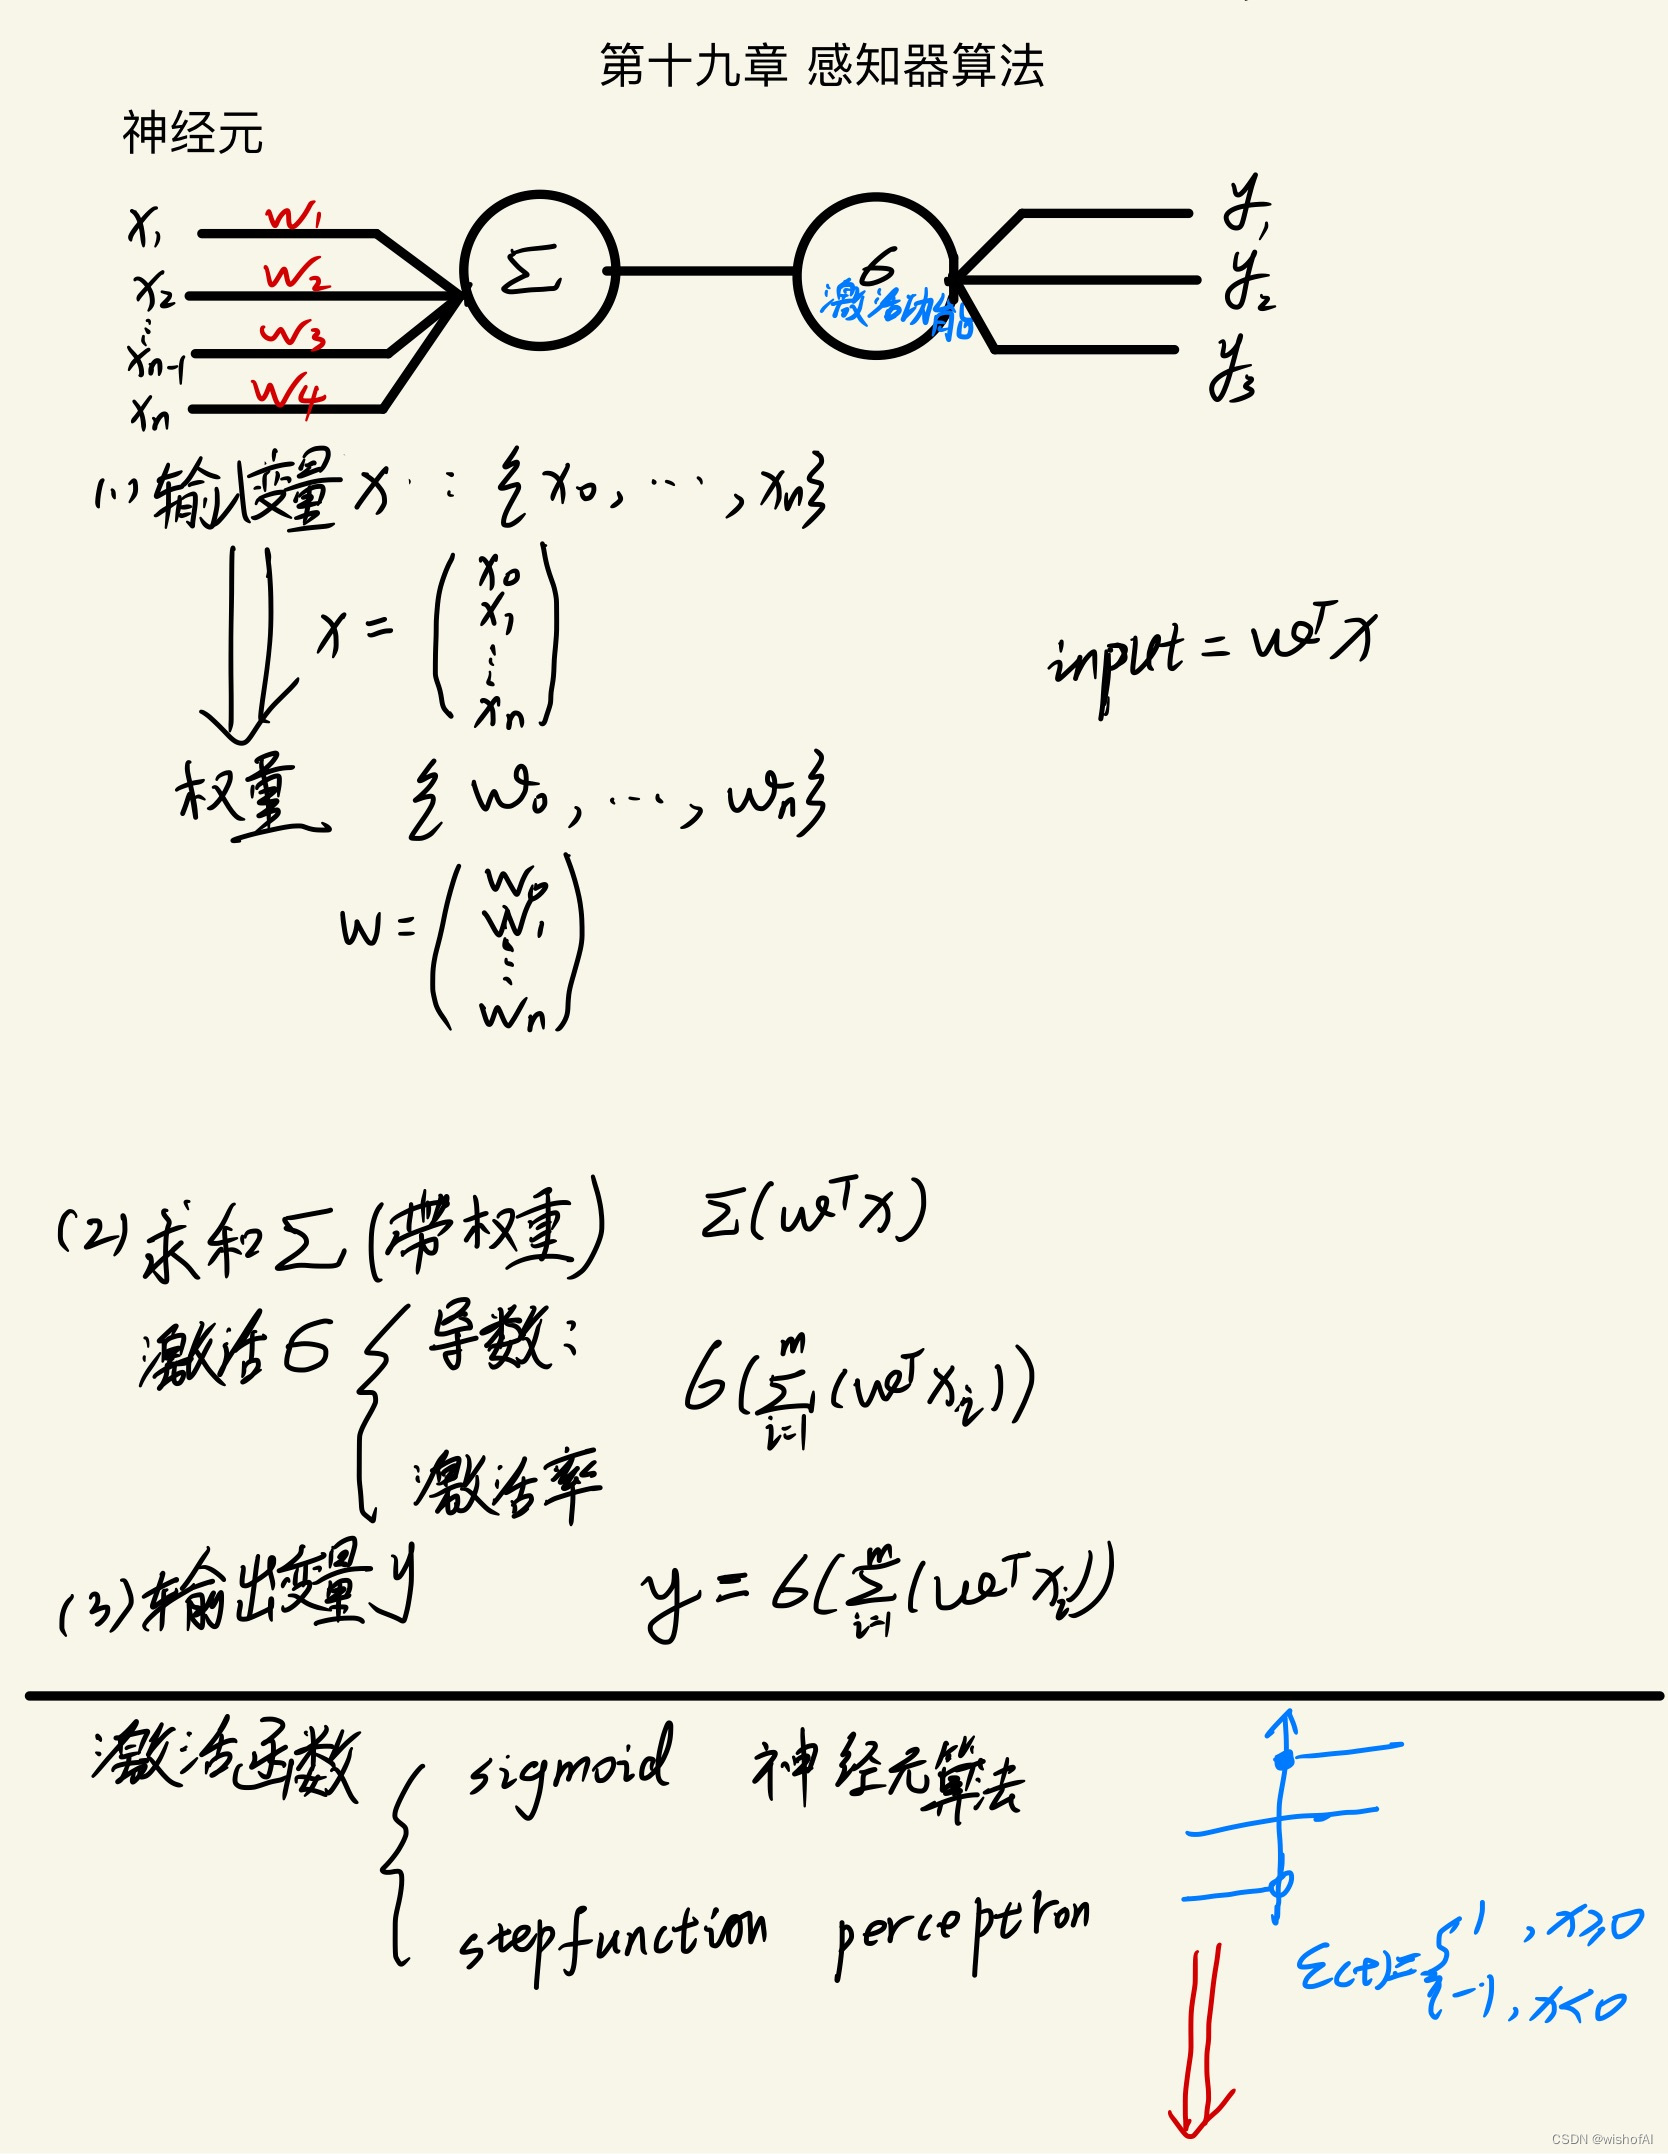 第十九章 感知器算法
神经元
x₁ w₁ Σ σ y₁
x₂ w₂ 激活功能 y₂
⋮
xₙ₋₁ w₃ y₃
xₙ w₄
(1) 输入变量 x : {x₀, ⋯, xₙ}
x = (x₀ x₁ ⋮ xₙ)
input = wᵀx
权重 {w₀, ⋯, wₙ}
w = (w₀ w₁ ⋮ wₙ)
(2) 求和 Σ (带权重) Σ(wᵀx)
激活 σ { 导数: σ(Σᵢ₌₁ᵐ(wᵀxᵢ))
激活率
(3) 输出变量 y y = σ(Σᵢ₌₁ᵐ(wᵀxᵢ))
激活函数 { sigmoid 神经元算法
stepfunction perceptron
ε(t)={ 1, x≥0
-1, x<0
CSDN @wishofAI